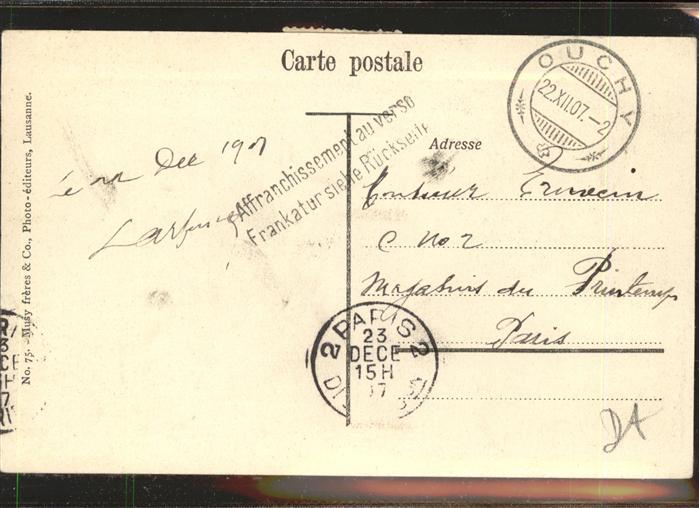 Carte postale
OUCHY
22.XII.07.-2
Affranchissement au verso
Frankatur siehe Rückseite
Adresse
Dec 1907
C No 2
Magasins du Printemps
Paris
PARIS 2
23
DECE
15H
07
No. 75. - Musy frères & Co., Photo-éditeurs, Lausanne.